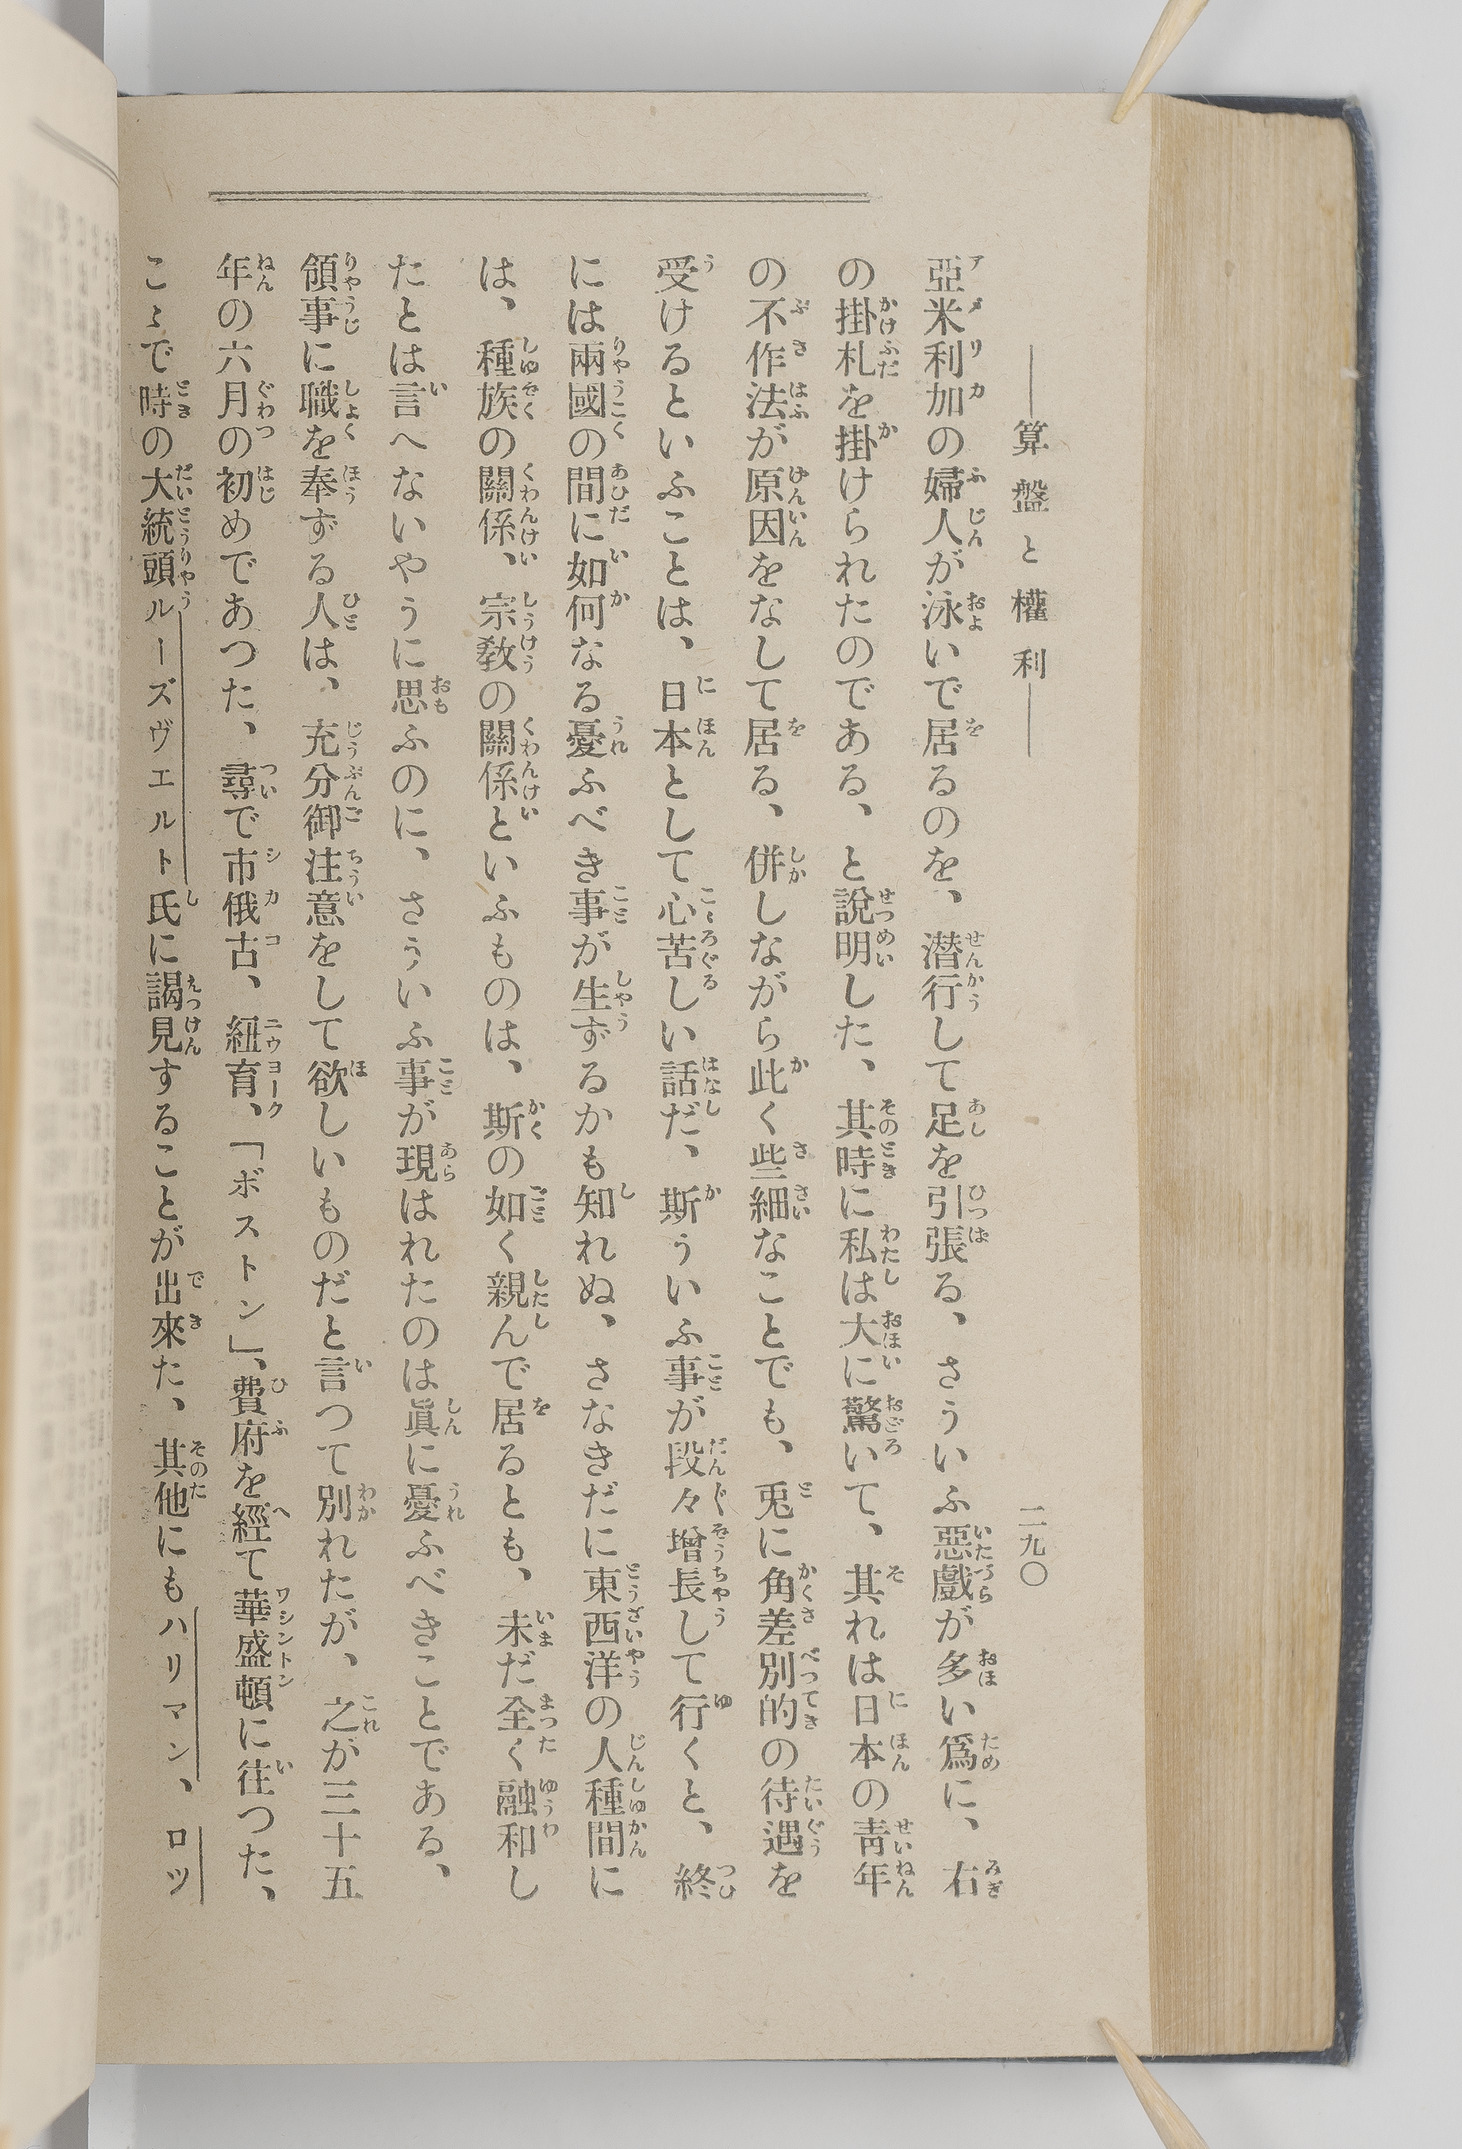 ――算盤と權利――
二九〇
亞米利加の婦人が泳いで居るのを、潜行して足を引張る、さういふ惡戯が多い爲に、右
の掛札を掛けられたのである、と說明した、其時に私は大に驚いて、其れは日本の靑年
の不作法が原因をなして居る、併しながら此く些細なことでも、兎に角差別的の待遇を
受けるといふことは、日本として心苦しい話だ、斯ういふ事が段々增長して行くと、終
には兩國の間に如何なる憂ふべき事が生ずるかも知れぬ、さなきだに東西洋の人種間に
は、種族の關係、宗敎の關係といふものは、斯の如く親んで居るとも、未だ全く融和し
たとは言へないやうに思ふのに、さういふ事が現はれたのは眞に憂ふべきことである、
領事に職を奉ずる人は、充分御注意をして欲しいものだと言つて別れたが、之が三十五
年の六月の初めであつた、尋で市俄古、紐育、「ボストン」、費府を經て華盛頓に往つた、
こゝで時の大統頭ルーズヴエルト氏に謁見することが出來た、其他にもハリマン、ロツ